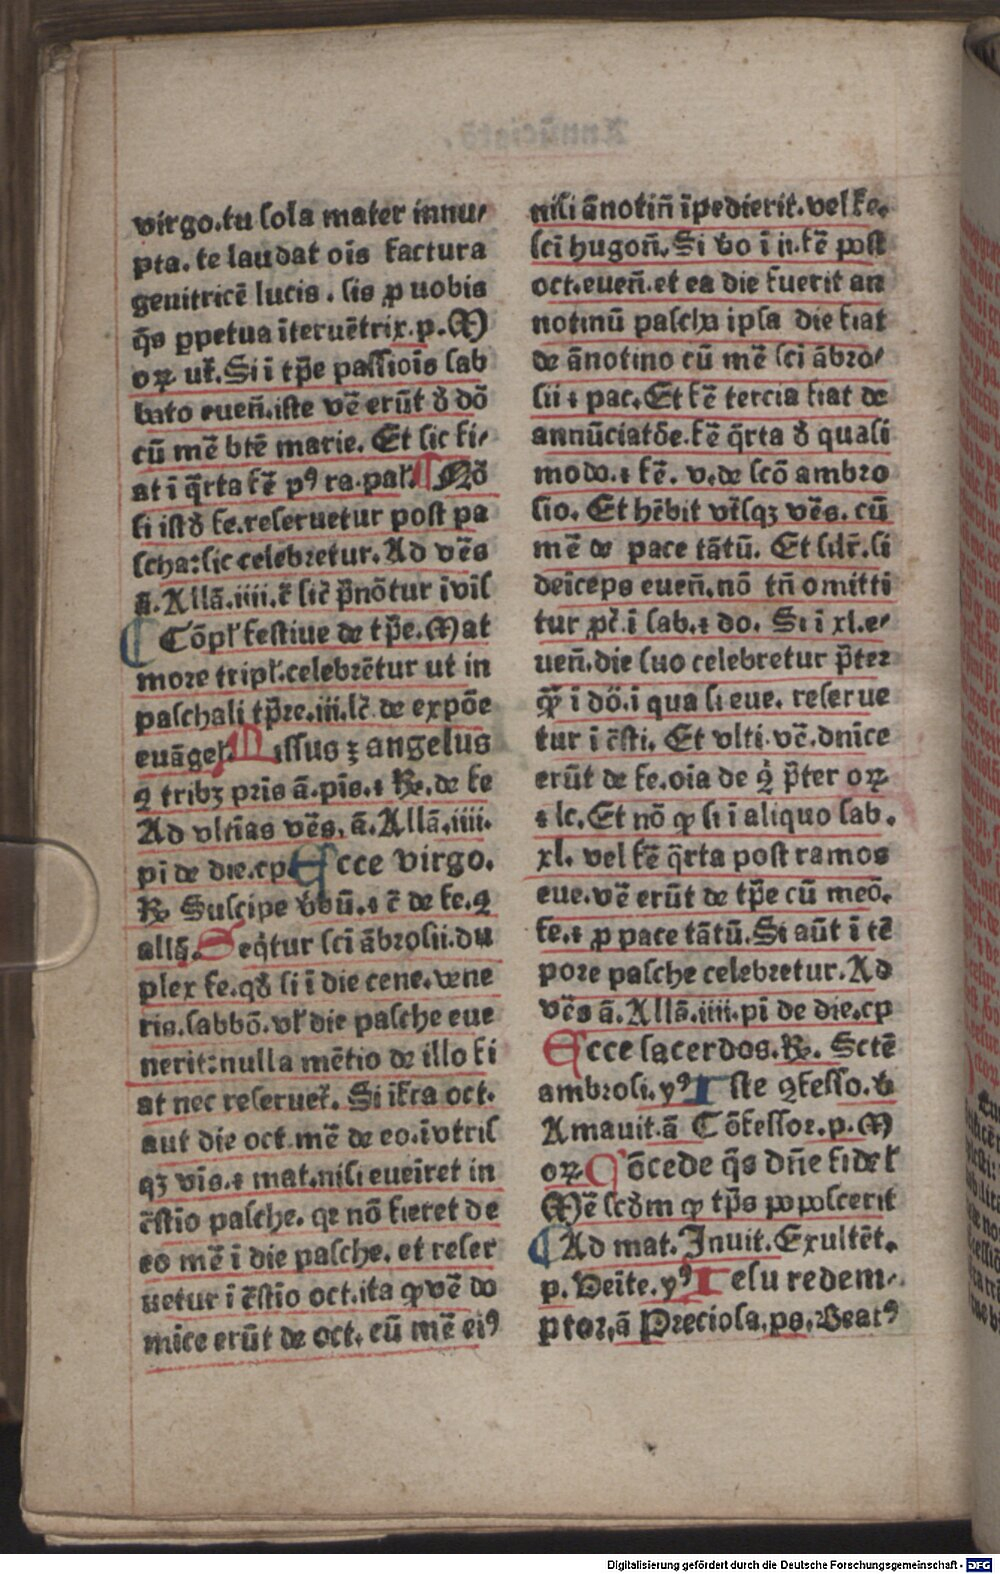 virgo.tu sola mater innu⸗
pta.te laudat oīs factura
genitricē lucis. sis ꝓ nobis
q̄s ꝑpetua īteruētrix.p.M
oꝝ ut̄.Si ī tp̄e passiois sab
bato eueñ.iste vē erūt ð dō
cū mē btē marie. Et sic fi⸗
at ī q̄rta fē pꝰ ra.pal.Nō
si istð fe.reseruetur post pa
scha:sic celebretur.Ad vēs
ā.Allā.iiii.c̄ sic̄ p̄nōtur ī vil
Cōpl̄ festiue de tp̄e.Mat
more tripl̄.celebrētur ut in
paschali tp̄re.iii.lc̄ de expōe
euāgel̄.Missus ꝫ angelus
ꝗ tribꝫ pris ā.pīs.⁊ ℞.de fe
Ad vltias vēs.ā.Allā.iiii.
pī de die.cp Ecce virgo.
℞ Suscipe v̄bū.⁊ c̄ de fe.ꝗ
allā.Seq̇tur sci ābrosii.du
plex fe.qð si ī die cene.vene
ris.sabbō.vl̄ die pasche eue
nerit:nulla mētio de illo fi
at nec reseruet̄.Si īfra oct.
aut die oct.mē de eo.ī vtris
qꝫ vīs.⁊ mat.nisi eueīret in
c̄stīo pasche.qꝛ nō fieret de
eo mē ī die pasche.et reser
uetur ī c̄stīo oct.ita ꝙ vē do
mīce erūt de oct.cū mē eiꝰ
nisi ānotiñ īpedierit.vel fe.
sci hugoñ.Si v̄o ī ii.fē post
oct.eueñ.et ea die fuerit an
notinū pascha ipsa die fiat
de ānotino cū mē sci ābro⸗
sii ⁊ pac.Et fē tercia fiat de
annūciatōe.fē q̄rta ð quasi
modo.⁊ fē. v.de scō ambro
sio. Et hēbit vt̄sqꝫ vēs. cū
mē de pace tātū. Et silr̄.si
deīceps eueñ.nō tñ omitti
tur ꝓc̄.ī sab.⁊ do. Si ī xl.e⸗
ueñ.die suo celebretur p̄ter
ꝙ̄ ī dō.ī qua si eue. reserue
tur ī c̄sti. Et vlti.vē.dnice
erūt de fe.oīa de ꝗ̇ p̄ter oꝝ
⁊ lc.Et nō ꝙ si ī aliquo sab.
xl. vel fē q̄rta post ramos
eue.vē erūt de tp̄e cū meō.
fe.⁊ ꝓ pace tātū.Si aūt ī tē
pore pasche celebretur.Ad
vēs ā.Allā.iiii.pī de die.cp
Ecce sacerdos.℞. Sctē
ambrosi.yꝰ Iste ꝯfesso.v̄
Amauit.ā Cōfessor.p.M
oꝝ Cōcede q̄s dñe fidel̄
Mē scðm ꝙ tp̄s poposcerit
Ad mat.Inuit.Exultēt.
p.Veīte.yꝰ Iesu redem⸗
ptor.ā Preciosa.ps.Beatꝰ
Digitalisierung gefördert durch die Deutsche Forschungsgemeinschaft - DFG